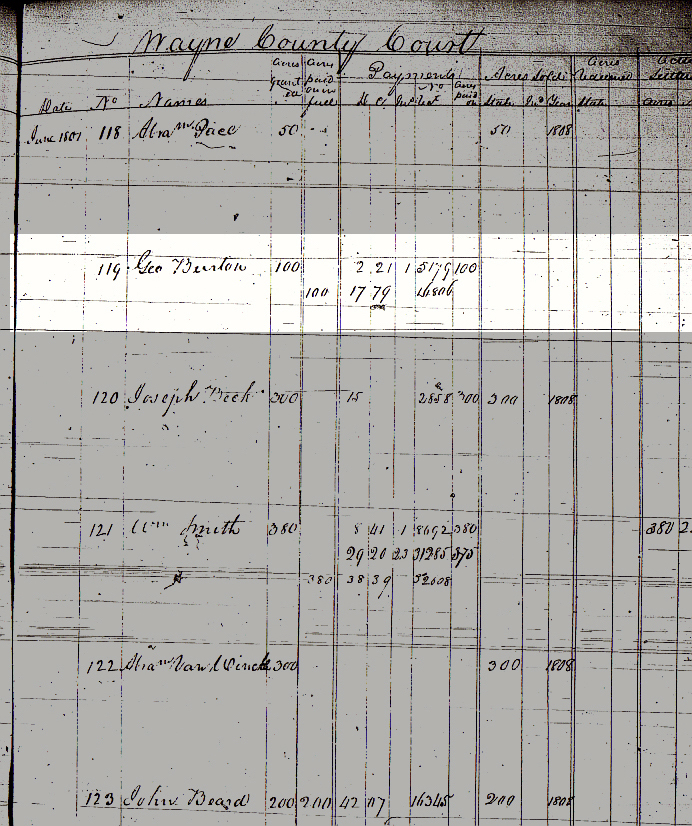 Wayne County Court
Date No Names Acres granted Acres paid on in full Payments D C No Acres paid on Acres Sold State Year Acres State Acres
June 1801 118 Abram Pace 50 50 1808
119 Geo Burton 100 2 21 1 5179 100
100 17 79 14806
120 Joseph Beck 300 15 2858 300 300 1808
121 Wm Smith 380 8 41 1 8692 380 380
29 20 23 31285 375
380 38 39 52608
122 Abram Van Winckle 300 300 1808
123 John Beard 200 200 42 07 16345 200 1808